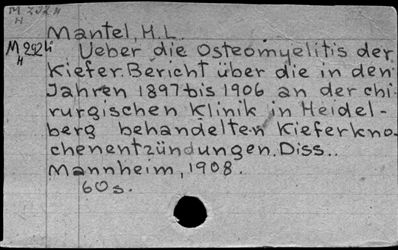 Mantel, H.L.
M 252
H
Ueber die Osteomyelitis der
Kiefer. Bericht über die in den
Jahren 1897 bis 1906 an der chi-
rurgischen Klinik in Heidel-
berg behandelten Kieferkno-
chenentzündungen. Diss..
Mannheim, 1908.
60s.